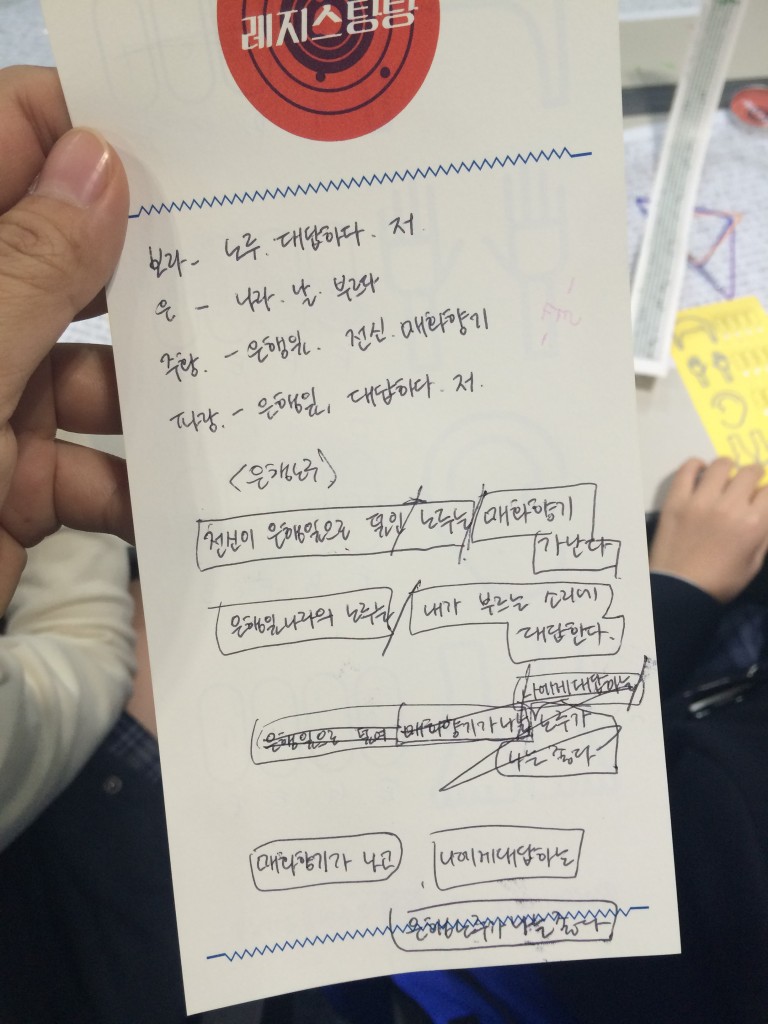 레지스탕탕
보라 - 노루. 대답하다. 저.
은 - 나라. 날. 부르다
주황. - 은행잎. 전신. 매화향기
파랑. - 은행잎, 대답하다. 저.
<은행노루>
전신이 은행잎으로 물인 노루는 매화향기
가난다
은행잎나라의 노루는 내가 부르는 소리에
대답한다.
나에게대답하는
은행잎으로 물여 매화향기가 나는 노루가
나는 좋다
매화향기가 나고 나에게대답하는
은행노루가 나는좋다